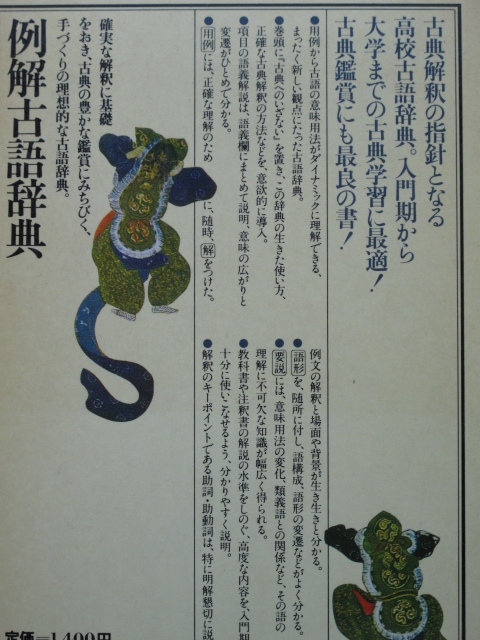 古典解釈の指針となる
高校古語辞典。入門期から
大学までの古典学習に最適！
古典鑑賞にも最良の書！
●用例から古語の意味用法がダイナミックに理解できる、
まったく新しい観点にたった古語辞典。
●巻頭に『古典へのいざない』を置き、この辞典の生きた使い方、
正確な古典解釈の方法などを、意欲的に導入。
●項目の語義解説は、語義欄にまとめて説明、意味の広がりと
変遷がひとめで分かる。
●用例には、正確な理解のために、随時、解をつけた。
例文の解釈と場面や背景が生き生きと分かる。
●語形を、随所に付し、語構成、語形の変遷などがよく分かる。
●要説には、意味用法の変化、類義語との関係など、その語の
理解に不可欠な知識が幅広く得られる。
●教科書や注釈書の解説の水準をしのぐ、高度な内容を、入門期
十分に使いこなせるよう、分かりやすく説明。
●解釈のキーポイントである助詞・助動詞は、特に明解懇切に説
確実な解釈に基礎
をおき、古典の豊かな鑑賞にみちびく、
手づくりの理想的な古語辞典。
例解古語辞典
定価=1,400円